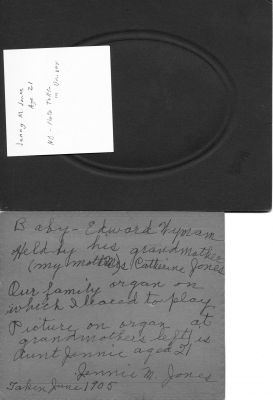 Jenny M. Jones
Age 21
Baby - Edward Wyman
Held by his grandmother
(my mother) Mrs Catherine Jones
Our family organ on
which I learned to play
Picture on organ at
grandmothers left is
Aunt Jennie aged 21
Jennie M. Jones
Taken June 1905